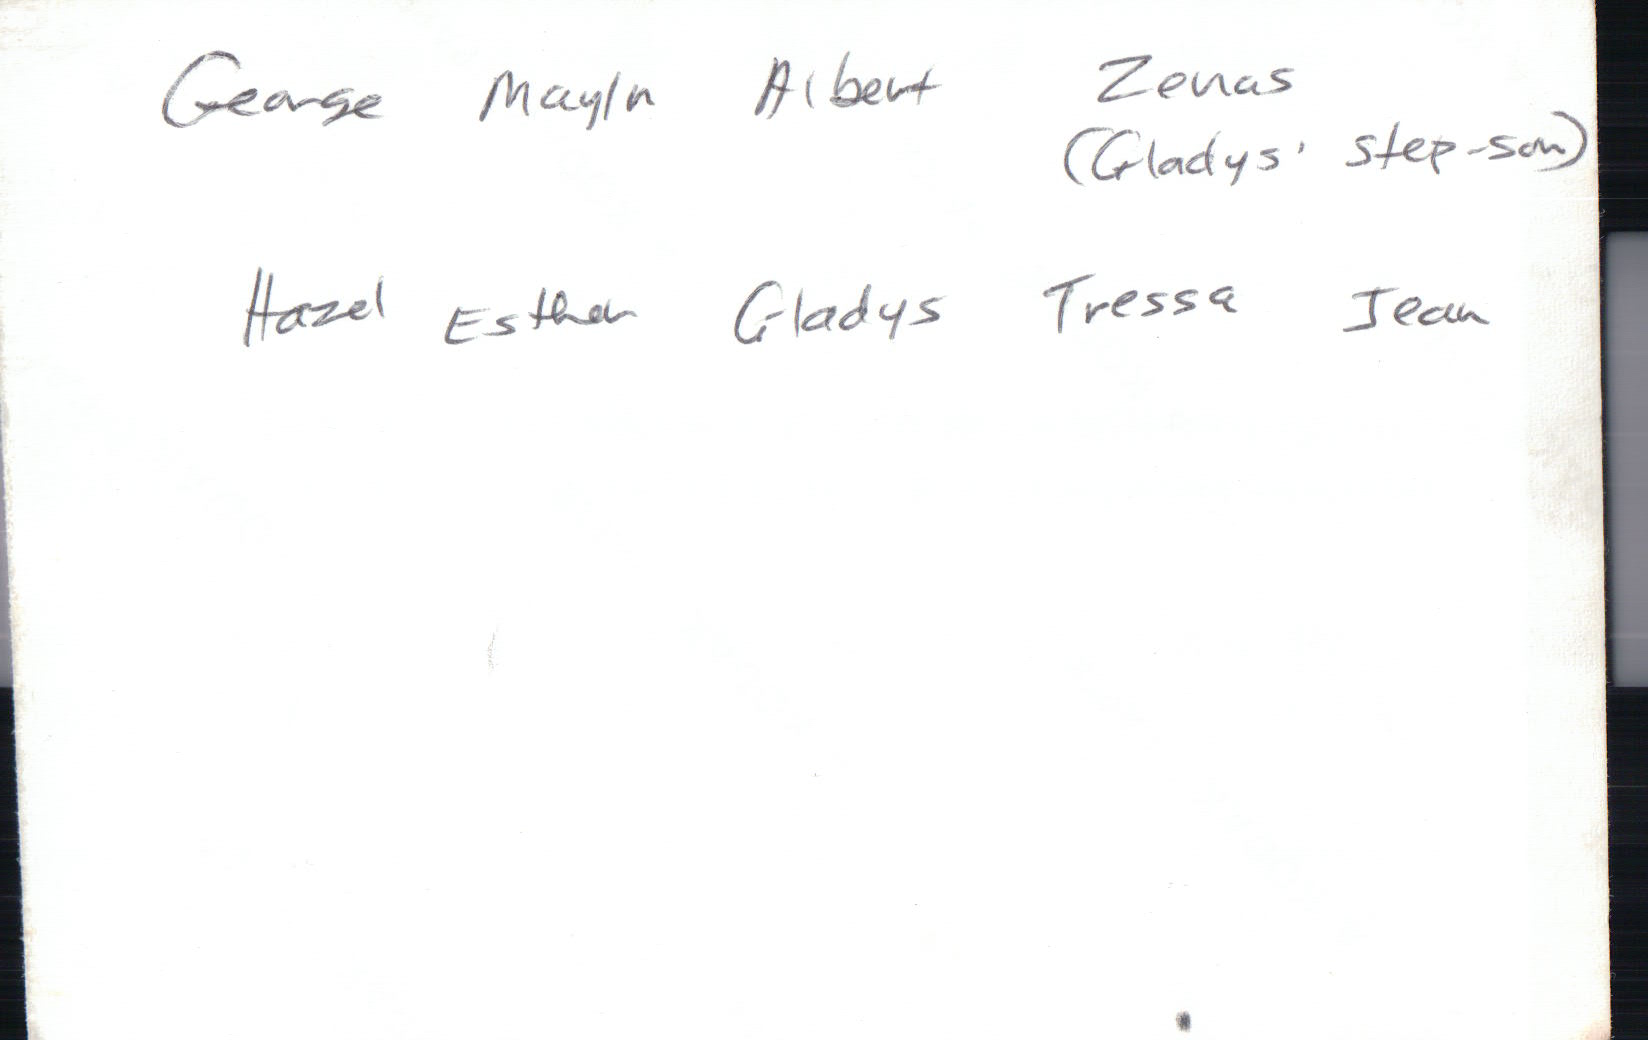 George Mayln Albert Zenas
(Gladys' step-son)
Hazel Esther Gladys Tressa Jean